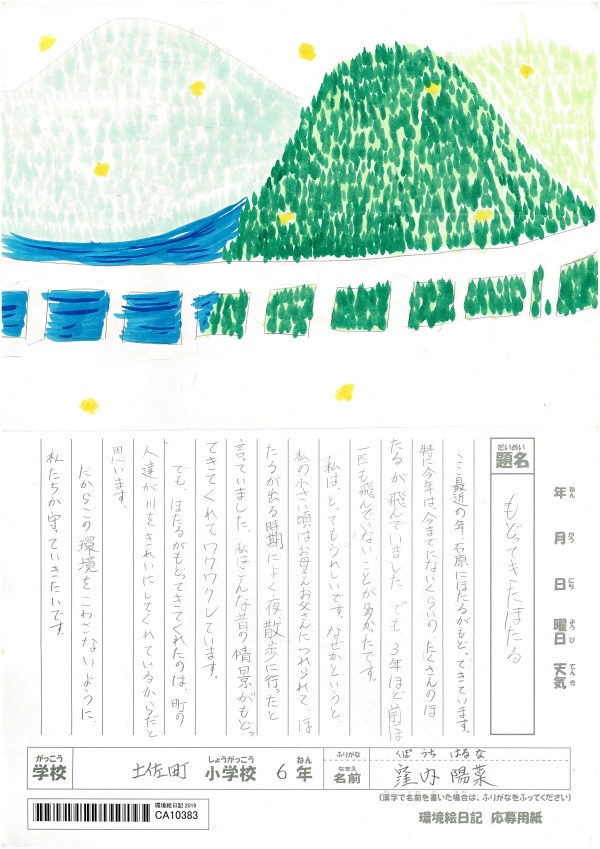 年 ねん
月 がつ
日 にち
曜日 ようび
天気 てんき
だいめい
題名
もどってきたほたる
ここ最近の年、石原にほたるがもどってきています。
特に今年は、今までにないくらいの、たくさんのほ
たるが飛んでいました。でも、3年ほど前は
一匹も飛んでいないことが多かったです。
私は、とってもうれしいです。なぜかというと、
私の小さい頃はお母さんお父さんにつれられて、ほ
たるが出る時期によく夜散歩に行ったと
言っていました。私はこんな昔の情景がもどっ
てきてくれてワクワクしています。
でも、ほたるがもどってきてくれたのは、町の
人達が川をきれいにしてくれているからだと
思います。
だからこの環境をこわさないように、
私たちが守っていきたいです。
がっこう しょうがっこう ねん
学校 土佐町 小学校 6 年
ふりがな くぼ うち はる な
なまえ
名前 窪内 陽菜
(漢字で名前を書いた場合は、ふりがなをふってください)
環境絵日記2019
CA10383
環境絵日記 応募用紙